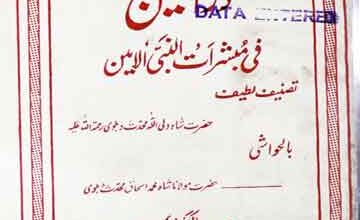 DATA ENTERED
فی مبشرات النبی الامین
تصنیف لطیف
حضرت شاہ ولی اللہ محدث دہلوی رحمۃ اللہ علیہ
بالحواشی
حضرت مولانا شاہ محمد اسحاق محدث دہلوی